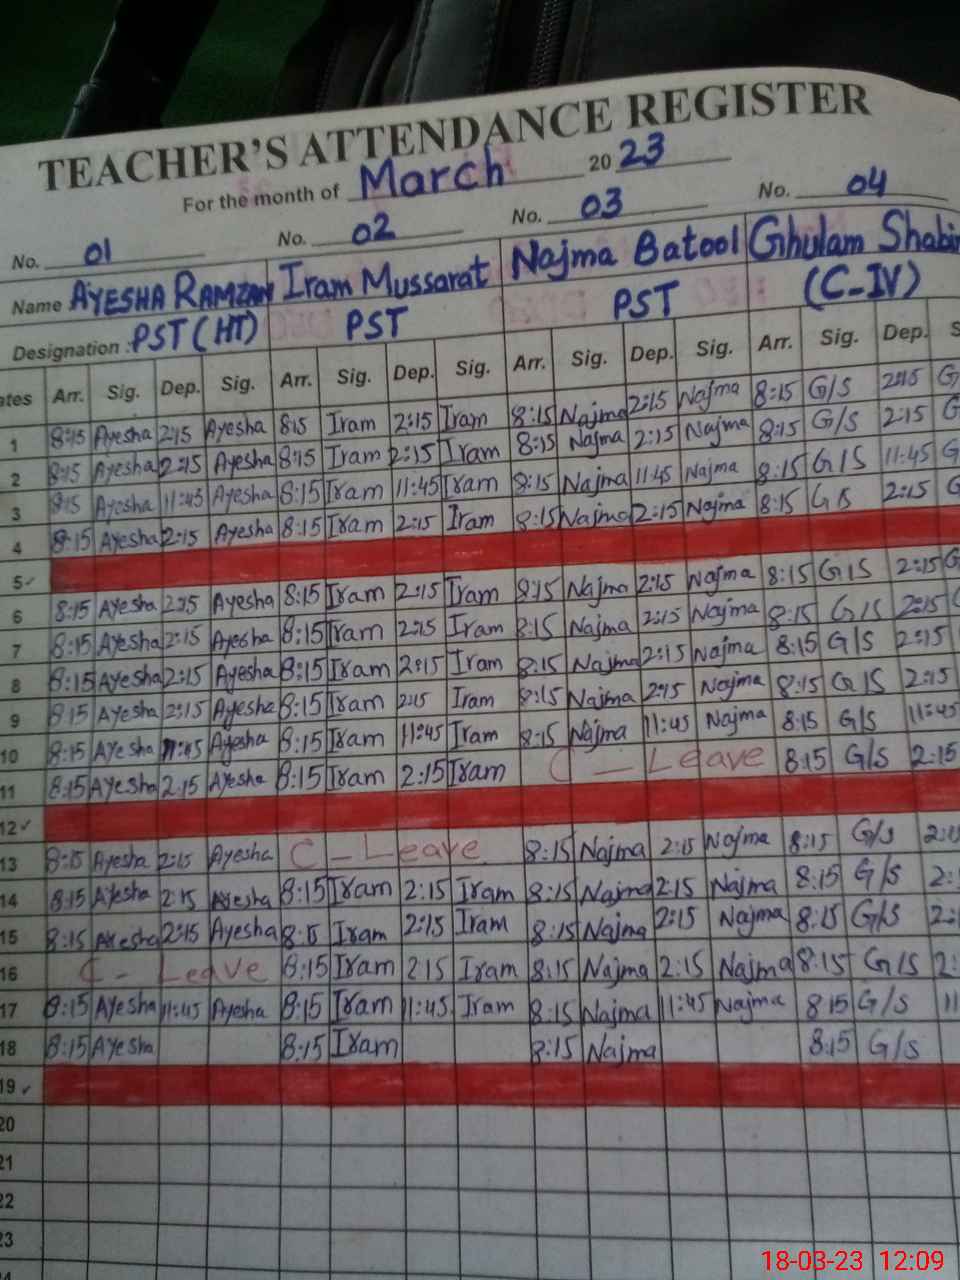 TEACHER'S ATTENDANCE REGISTER
For the month of March 2023
No. 01 No. 02 No. 03 No. 04
Name AYESHA RAMZAN Iram Mussarat Najma Batool Ghulam Shabir
Designation : PST (HT) PST PST (C-IV)
ates Arr. Sig. Dep. Sig. Arr. Sig. Dep. Sig. Arr. Sig. Dep. Sig. Arr. Sig. Dep. S
1 8:15 Ayesha 2:15 Ayesha 8:15 Iram 2:15 Iram 8:15 Najma 2:15 Najma 8:15 G/S 2:15 G
2 8:15 Ayesha 2:15 Ayesha 8:15 Iram 2:15 Iram 8:15 Najma 2:15 Najma 8:15 G/S 2:15 G
3 8:15 Ayesha 11:45 Ayesha 8:15 Iram 11:45 Iram 8:15 Najma 11:45 Najma 8:15 G/S 11:45 G
4 8:15 Ayesha 2:15 Ayesha 8:15 Iram 2:15 Iram 8:15 Najma 2:15 Najma 8:15 G/S 2:15 G
5 ✓
6 8:15 Ayesha 2:15 Ayesha 8:15 Iram 2:15 Iram 8:15 Najma 2:15 Najma 8:15 G/S 2:15 G
7 8:15 Ayesha 2:15 Ayesha 8:15 Iram 2:15 Iram 8:15 Najma 2:15 Najma 8:15 G/S 2:15
8 8:15 Ayesha 2:15 Ayesha 8:15 Iram 2:15 Iram 8:15 Najma 2:15 Najma 8:15 G/S 2:15
9 8:15 Ayesha 2:15 Ayesha 8:15 Iram 2:15 Iram 8:15 Najma 2:15 Najma 8:15 G/S 2:15
10 8:15 Ayesha 11:45 Ayesha 8:15 Iram 11:45 Iram 8:15 Najma 11:45 Najma 8:15 G/S 11:45
11 8:15 Ayesha 2:15 Ayesha 8:15 Iram 2:15 Iram C - Leave 8:15 G/S 2:15
12 ✓
13 8:15 Ayesha 2:15 Ayesha C - Leave 8:15 Najma 2:15 Najma 8:15 G/S 2:1
14 8:15 Ayesha 2:15 Ayesha 8:15 Iram 2:15 Iram 8:15 Najma 2:15 Najma 8:15 G/S 2:
15 8:15 Ayesha 2:15 Ayesha 8:15 Iram 2:15 Iram 8:15 Najma 2:15 Najma 8:15 G/S 2:1
16 C - Leave 8:15 Iram 2:15 Iram 8:15 Najma 2:15 Najma 8:15 G/S 2:
17 8:15 Ayesha 11:45 Ayesha 8:15 Iram 11:45 Iram 8:15 Najma 11:45 Najma 8:15 G/S 11
18 8:15 Ayesha 8:15 Iram 8:15 Najma 8:15 G/S
19 ✓
20
21
22
23
18-03-23 12:09